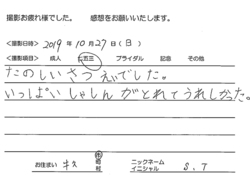 撮影お疲れ様でした。 感想をお願いいたします。
<撮影日時> 2019 年 10 月 27 日 ( 日 )
<撮影項目> 成人 七五三 ブライダル 記念 その他
たのしいさつえいでした。
いっぱいしゃしんがとれてうれしかった。
お住まい 牛久 市 町 村 ニックネーム イニシャル S.T